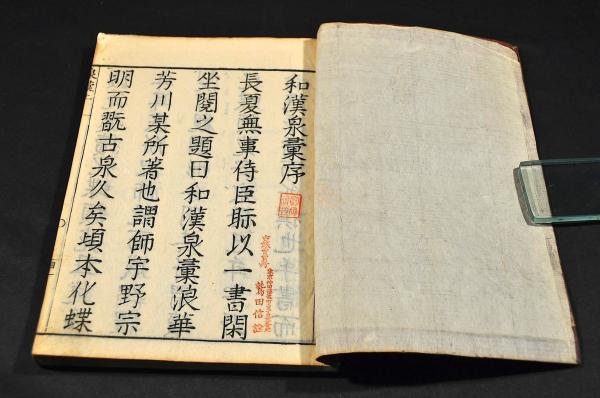 和漢泉彙序
長夏無事侍臣眎以一書閑
坐閱之題曰和漢泉彙浪華
芳川某所著也謂師宇野宗
明而翫古泉久矣頃本化蝶
鷲田信證